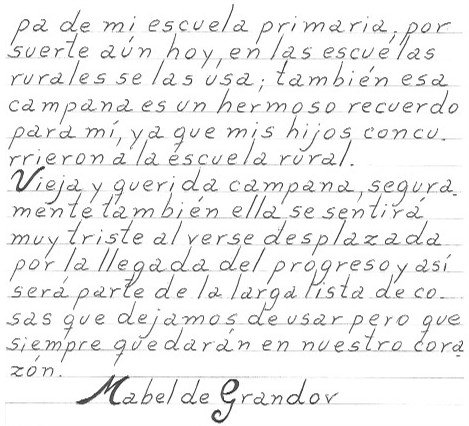 pa de mi escuela primaria, por
suerte aún hoy, en las escuelas
rurales se las usa; también esa
campana es un hermoso recuerdo
para mí, ya que mis hijos concu-
rrieron a la escuela rural.
Vieja y querida campana, segura-
mente también ella se sentirá
muy triste al verse desplazada
por la llegada del progreso y así
será parte de la larga lista de co-
sas que dejamos de usar pero que
siempre quedarán en nuestro cora-
zón.
Mabel de Grandov